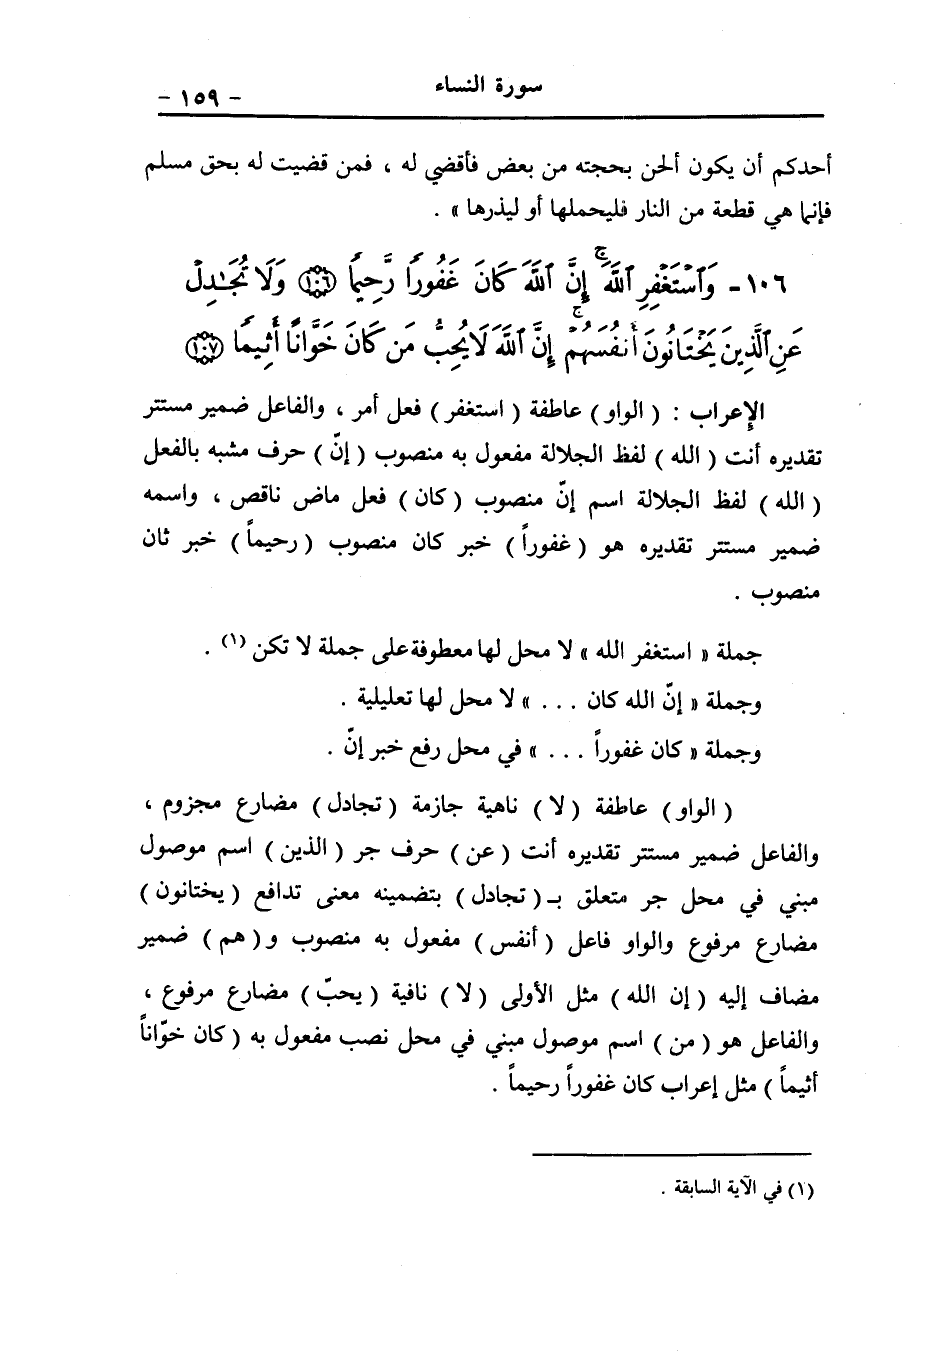 سورة النساء
- ١٥٩ -
أحدكم أن يكون ألحن بحجته من بعض فأقضي له ، فمن قضيت له بحق مسلم
فإنما هي قطعة من النار فليحملها أو ليذرها » .
١٠٦- وَٱسْتَغْفِرِ ٱللَّهَ ۖ إِنَّ ٱللَّهَ كَانَ غَفُورًا رَّحِيمًا ١٠٦ وَلَا تُجَـٰدِلْ
عَنِ ٱلَّذِينَ يَخْتَانُونَ أَنفُسَهُمْ ۚ إِنَّ ٱللَّهَ لَا يُحِبُّ مَن كَانَ خَوَّانًا أَثِيمًا ١٠٧
الإعراب : ( الواو ) عاطفة ( استغفر ) فعل أمر ، والفاعل ضمير مستتر
تقديره أنت ( الله ) لفظ الجلالة مفعول به منصوب ( إنّ ) حرف مشبه بالفعل
( الله ) لفظ الجلالة اسم إنّ منصوب ( كان ) فعل ماض ناقص ، واسمه
ضمير مستتر تقديره هو ( غفوراً ) خبر كان منصوب ( رحيماً ) خبر ثان
منصوب .
جملة « استغفر الله » لا محل لها معطوفة على جملة لا تكن (١) .
وجملة « إنّ الله كان . . . » لا محل لها تعليلية .
وجملة « كان غفوراً . . . » في محل رفع خبر إنّ .
( الواو ) عاطفة ( لا ) ناهية جازمة ( تجادل ) مضارع مجزوم ،
والفاعل ضمير مستتر تقديره أنت ( عن ) حرف جر ( الذين ) اسم موصول
مبني في محل جر متعلق بـ ( تجادل ) بتضمينه معنى تدافع ( يختانون )
مضارع مرفوع والواو فاعل ( أنفس ) مفعول به منصوب و ( هم ) ضمير
مضاف إليه ( إن الله ) مثل الأولى ( لا ) نافية ( يحبّ ) مضارع مرفوع ،
والفاعل هو ( من ) اسم موصول مبني في محل نصب مفعول به ( كان خوّاناً
أثيماً ) مثل إعراب كان غفوراً رحيماً .
(١) في الآية السابقة .